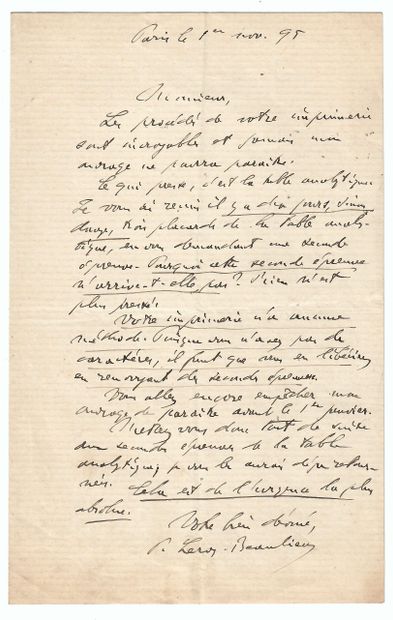 Paris le 1er nov. 95
Monsieur,
Les procédés de votre imprimerie
sont incroyables et jamais mon
ouvrage ne pourra paraître.
Ce qui presse, c'est la table analytique.
Je vous ai remis il y a dix jours,
trois placards de la table analy-
tique, en vous demandant une seconde
épreuve. Pourquoi cette seconde épreuve
n'arrive-t-elle pas? Rien n'est
plus pressé.
Votre imprimerie n'a aucune
méthode. Puisque vous n'avez pas de
caractères, il faut que vous en libériez
en renvoyant des secondes épreuves.
Vous allez encore empêcher mon
ouvrage de paraître avant le 1er janvier.
vous donc tout de suite
secondes épreuves de la table
analytique; je vous les aurai déjà retour-
nés. Cela est de l'urgence la plus
absolue.
Votre bien dévoué,
P. Leroy-Beaulieu